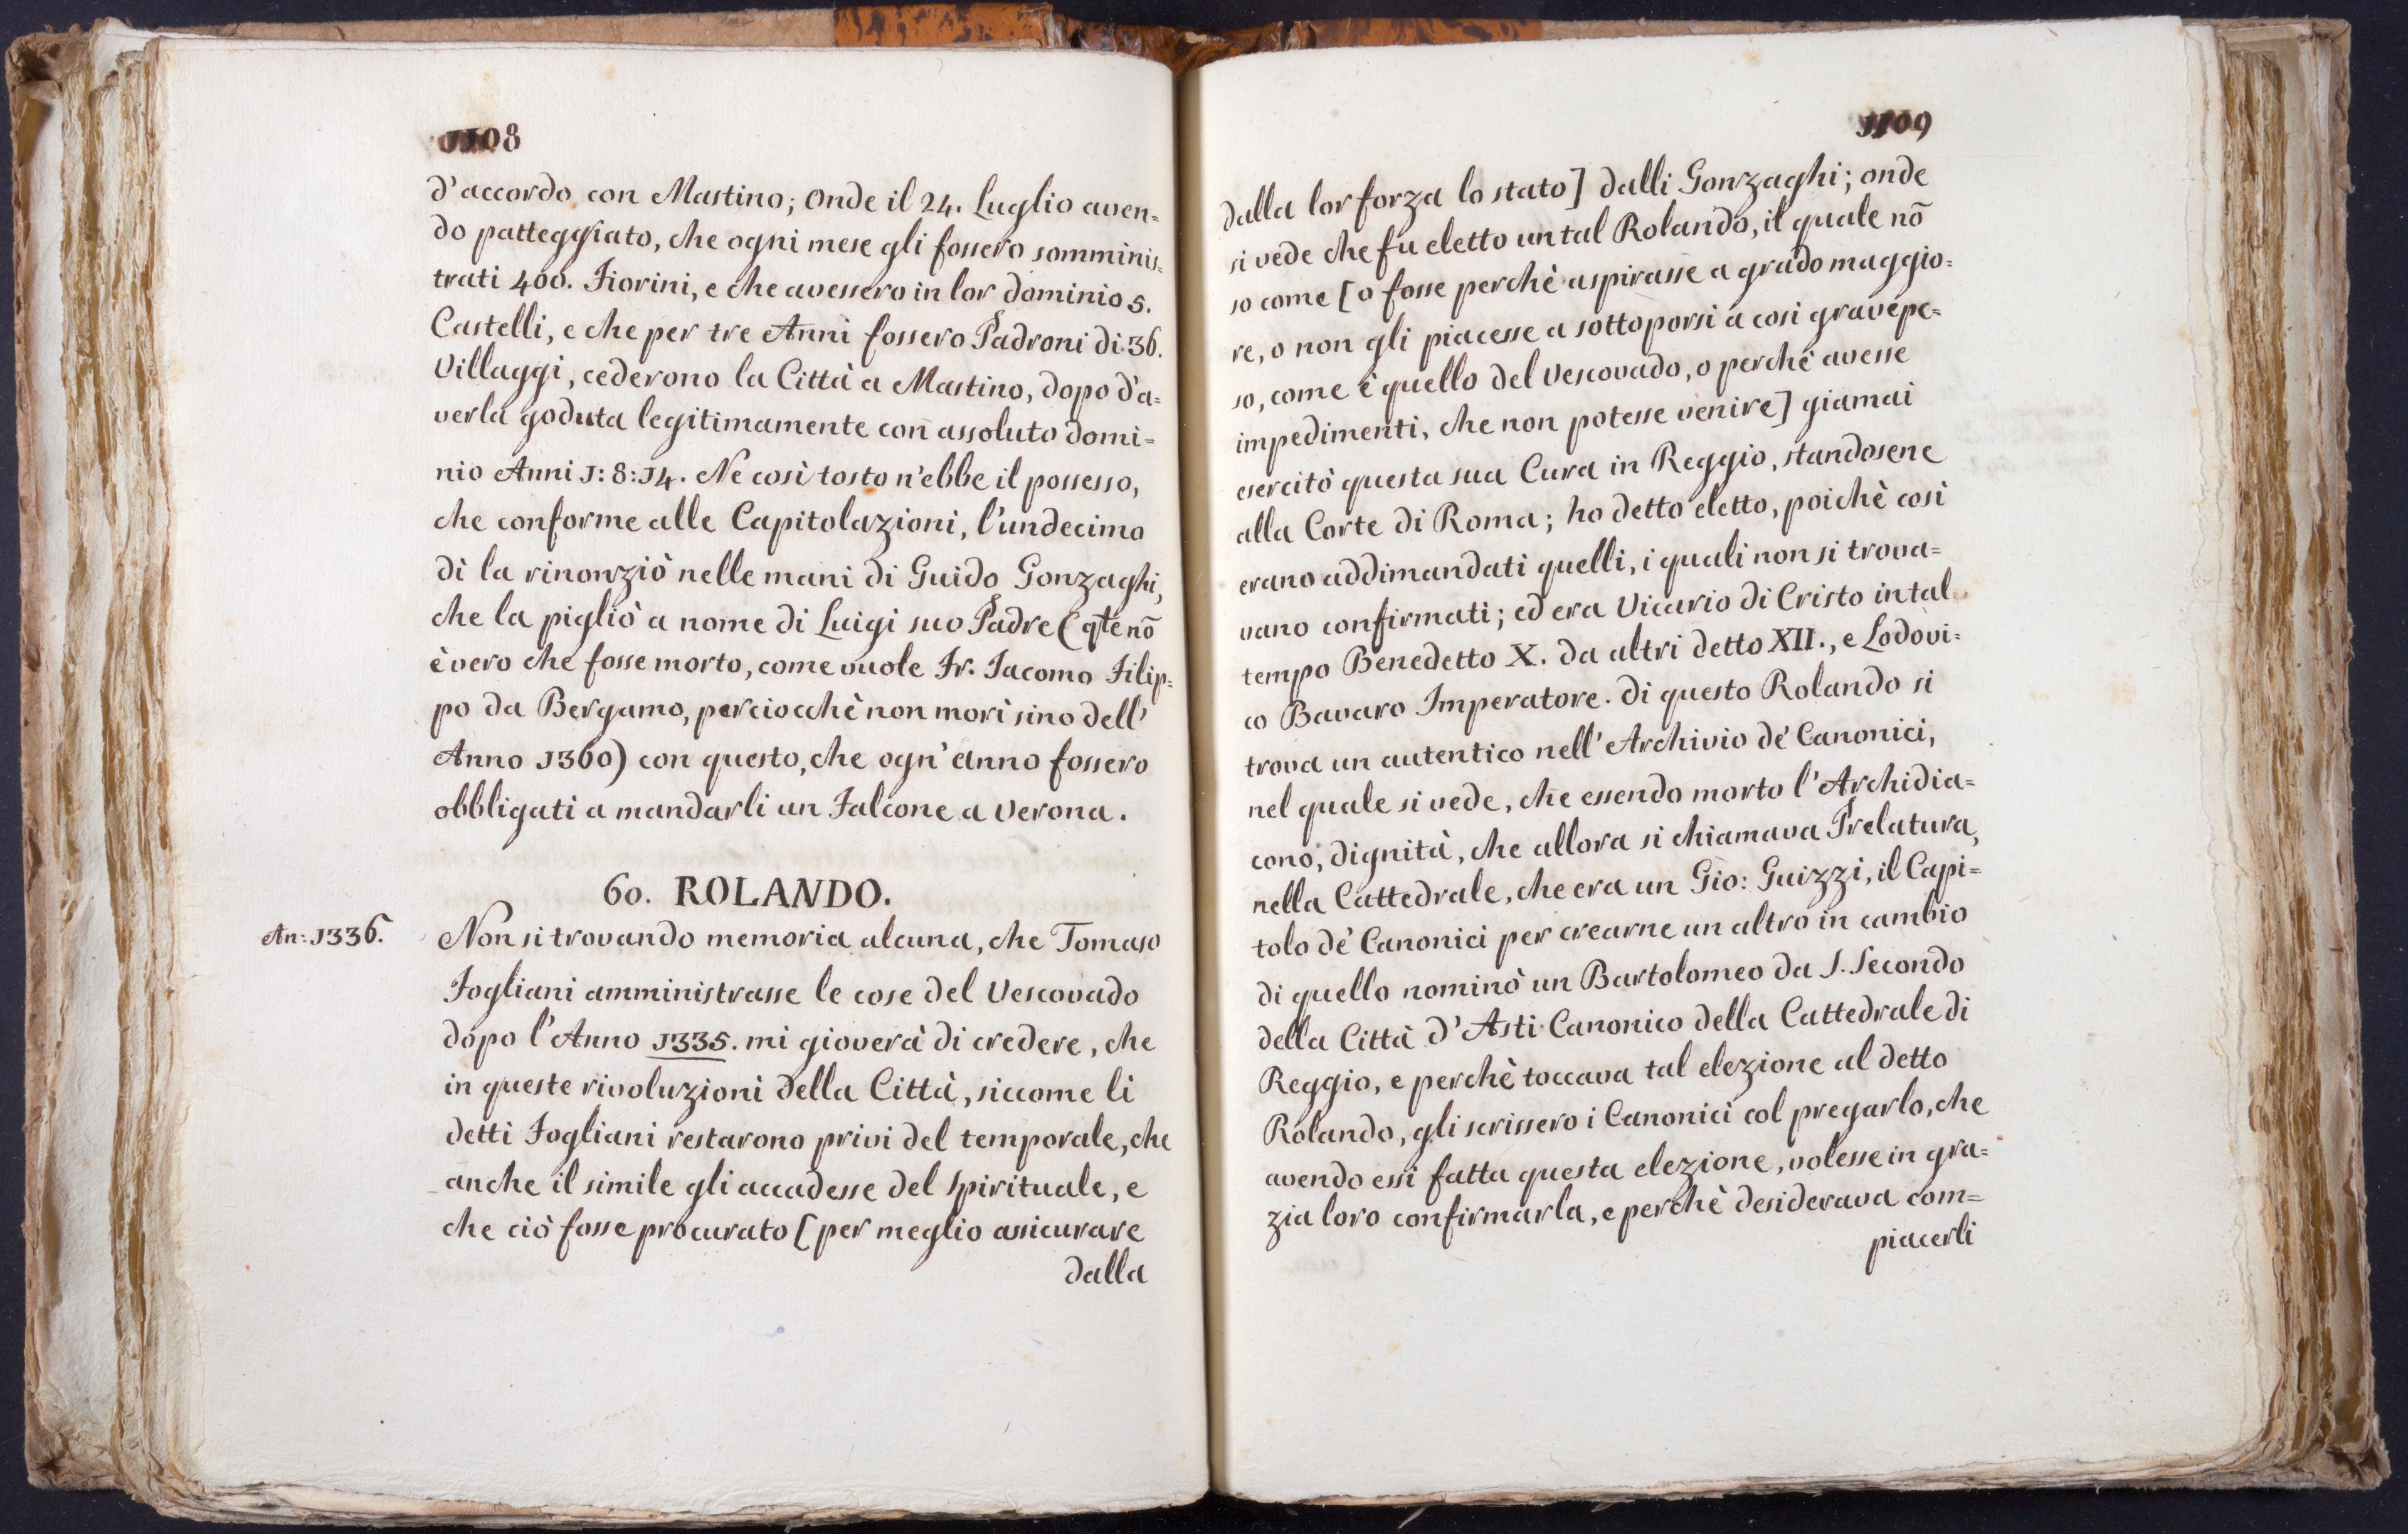 1108
d'accordo con Mastino; Onde il 24. Luglio aven=
do patteggiato, che ogni mese gli fossero somminis=
trati 400. Fiorini, e che avessero in lor dominio 5.
Castelli, e che per tre Anni fossero Padroni di 36.
Villaggi, cederono la Città a Mastino, dopo d'a=
verla goduta legitimamente con assoluto domi=
nio Anni 1: 8: 14. Ne così tosto n'ebbe il possesso,
che conforme alle Capitolazioni, l'undecimo
dì la rinonziò nelle mani di Guido Gonzaghi,
che la pigliò a nome di Luigi suo Padre (qte nõ
è vero che fosse morto, come vuole Fr. Iacomo Filip=
po da Bergamo, perciocchè non morì sino dell'
Anno 1360) con questo, che ogn'anno fossero
obbligati a mandarli un Falcone a Verona.
60. ROLANDO.
An: 1336. Non si trovando memoria alcuna, che Tomaso
Fogliani amministrasse le cose del Vescovado
dopo l'Anno 1335. mi gioverà di credere, che
in queste rivoluzioni della Città, siccome li
detti Fogliani restarono privi del temporale, che
anche il simile gli accadesse del spirituale, e
che ciò fosse procurato [per meglio assicurare
dalla
1109
dalla lor forza lo stato] dalli Gonzaghi; onde
si vede che fu eletto un tal Rolando, il quale nõ
so come [o fosse perchè aspirasse a grado maggio=
re, o non gli piacesse a sottoporsi a così grave pe=
so, come è quello del Vescovado, o perchè avesse
impedimenti, che non potesse venire] giamai
esercitò questa sua Cura in Reggio, standosene
alla Corte di Roma; ho detto eletto, poichè così
erano addimandati quelli, i quali non si trova=
vano confirmati; ed era Vicario di Cristo in tal
tempo Benedetto X. da altri detto XII., e Lodovi=
co Bavaro Imperatore. Di questo Rolando si
trova un autentico nell'Archivio de' Canonici,
nel quale si vede, che essendo morto l'Archidia=
cono, dignità, che allora si chiamava Prelatura,
nella Cattedrale, che era un Gio: Guizzi, il Capi=
tolo de' Canonici per crearne un altro in cambio
di quello nominò un Bartolomeo da S. Secondo
della Città d'Asti Canonico della Cattedrale di
Reggio, e perchè toccava tal elezione al detto
Rolando, gli scrissero i Canonici col pregarlo, che
avendo essi fatta questa elezione, volesse in gra=
zia loro confirmarla, e perchè desiderava com=
piacerli